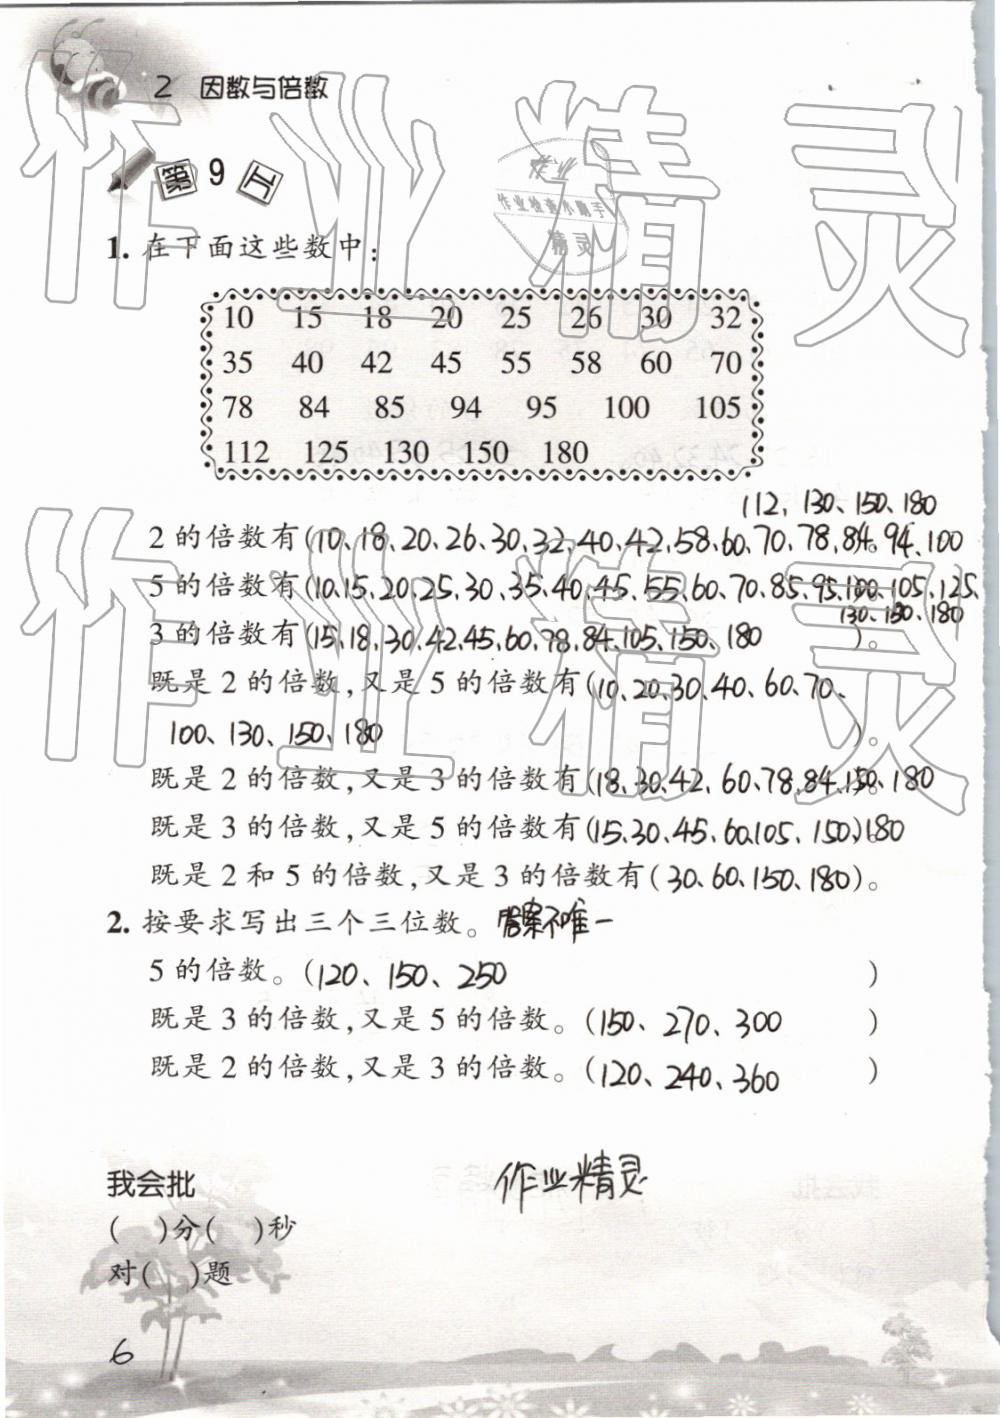 2 因数与倍数
第9卫
作业
作业检查小助手
精灵
1. 在下面这些数中：
10 15 18 20 25 26 30 32
35 40 42 45 55 58 60 70
78 84 85 94 95 100 105
112 125 130 150 180
112, 130、150、180
2的倍数有(10、18、20、26、30、32、40、42、58、60、70、78、84、94、100
5的倍数有(10、15、20、25、30、35、40、45、55、60、70、85、95、100、105、125、
130、150、180
3的倍数有(15、18、30、42、45、60、78、84、105、150、180 )。
既是2的倍数，又是5的倍数有(10、20、30、40、60、70、
100、130、150、180 )。
既是2的倍数，又是3的倍数有(18、30、42、60、78、84、150、180
既是3的倍数，又是5的倍数有(15、30、45、60、105、150)180
既是2和5的倍数，又是3的倍数有(30、60、150、180)。
2. 按要求写出三个三位数。答案不唯一
5的倍数。(120、150、250 )
既是3的倍数，又是5的倍数。(150、270、300 )
既是2的倍数，又是3的倍数。(120、240、360 )
作业精灵
我会批
( )分( )秒
对( )题
6
作业精灵
作业精灵